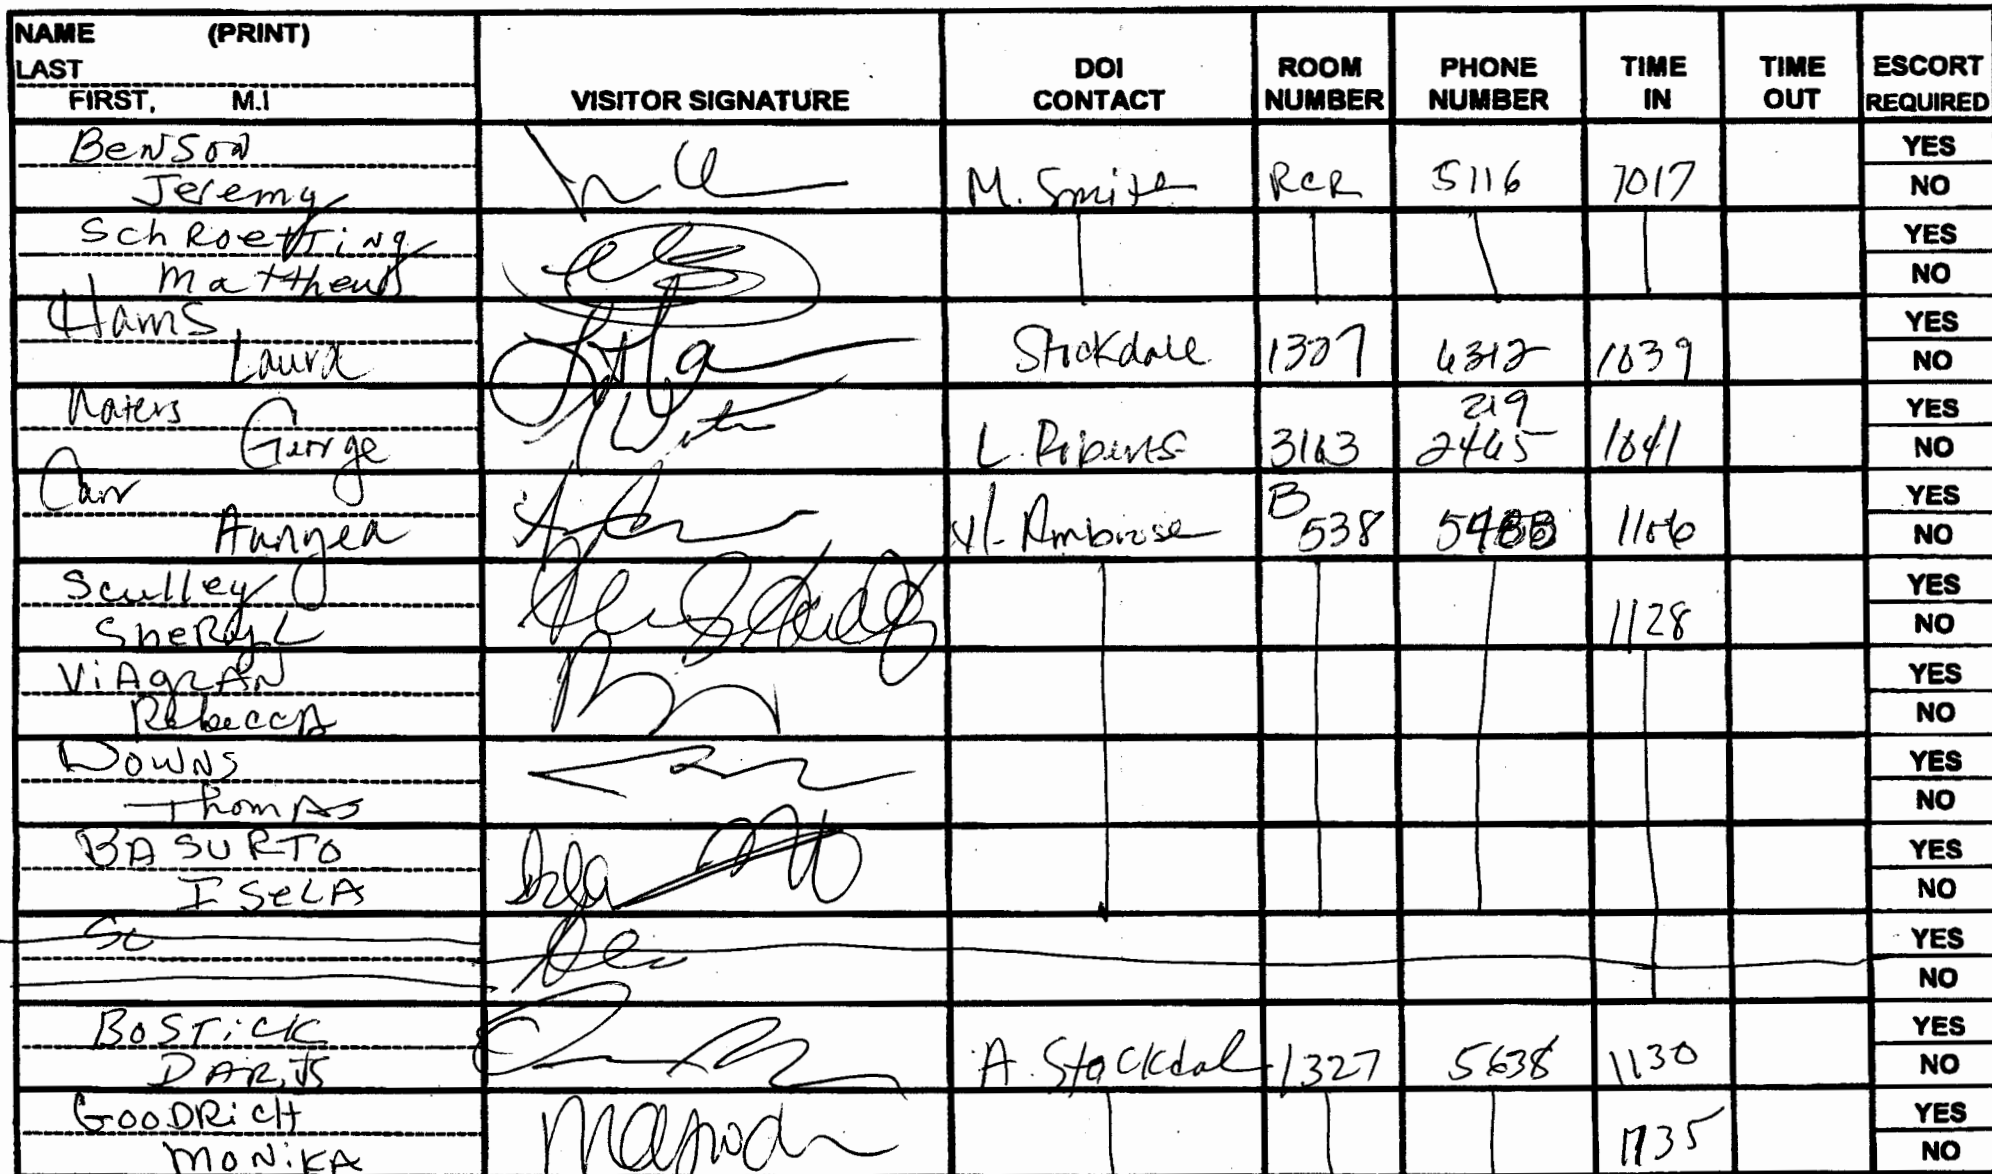 NAME (PRINT)
LAST
FIRST, M.I
VISITOR SIGNATURE
DOI CONTACT
ROOM NUMBER
PHONE NUMBER
TIME IN
TIME OUT
ESCORT REQUIRED
BENSON
Jeremy
M. Smith RCR 5116 1017
YES
NO
SchRoetTiNg
Matthew
YES
NO
Hams
Laura
Stockdale 1327 6312 1039
YES
NO
Waters
George
L. Roberts 3163 219 2465 1041
YES
NO
Carr
Aunyea
Ambrose B 538 1106
YES
NO
Sculley
SheRyL
1128
YES
NO
ViAgRAN
RebeccA
YES
NO
DOWNS
ThomAs
YES
NO
BASURTO
ISeLA
YES
NO
SC
YES
NO
BOSTiCK
DARiUS
A. Stockdal 1327 5638 1130
YES
NO
GOODRiCH
MONiKA
1135
YES
NO